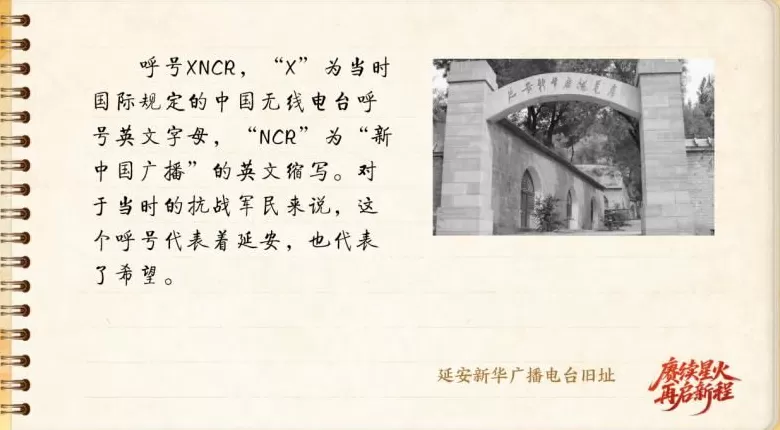 呼号XNCR，“X”为当时
国际规定的中国无线电台呼
号英文字母，“NCR”为“新
中国广播”的英文缩写。对
于当时的抗战军民来说，这
个呼号代表着延安，也代表
了希望。
延安新华广播电台旧址
赓续星火
再启新程